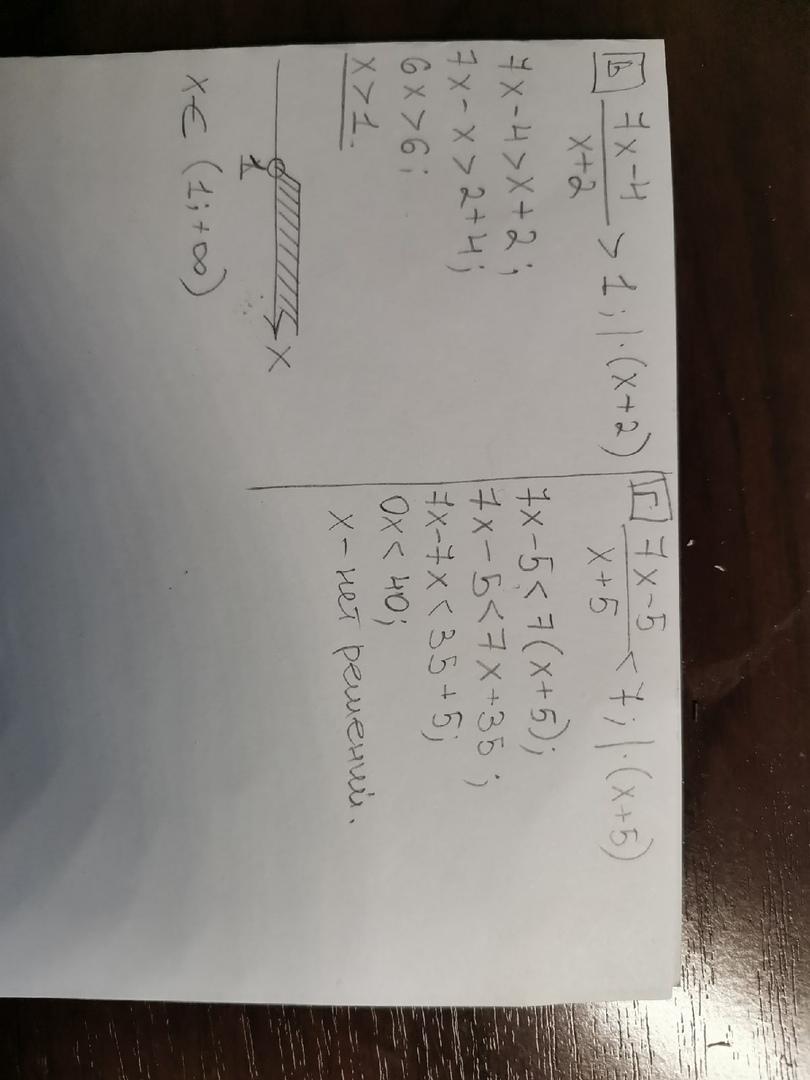 в) (7x-4)/(x+2) > 1; | · (x+2)
7x-4>x+2;
7x-x>2+4;
6x>6;
x>1.
1 x
x∈ (1;+∞)
г) (7x-5)/(x+5) < 7; | · (x+5)
7x-5<7(x+5);
7x-5<7x+35;
7x-7x<35+5;
0x<40;
x-нет решений.